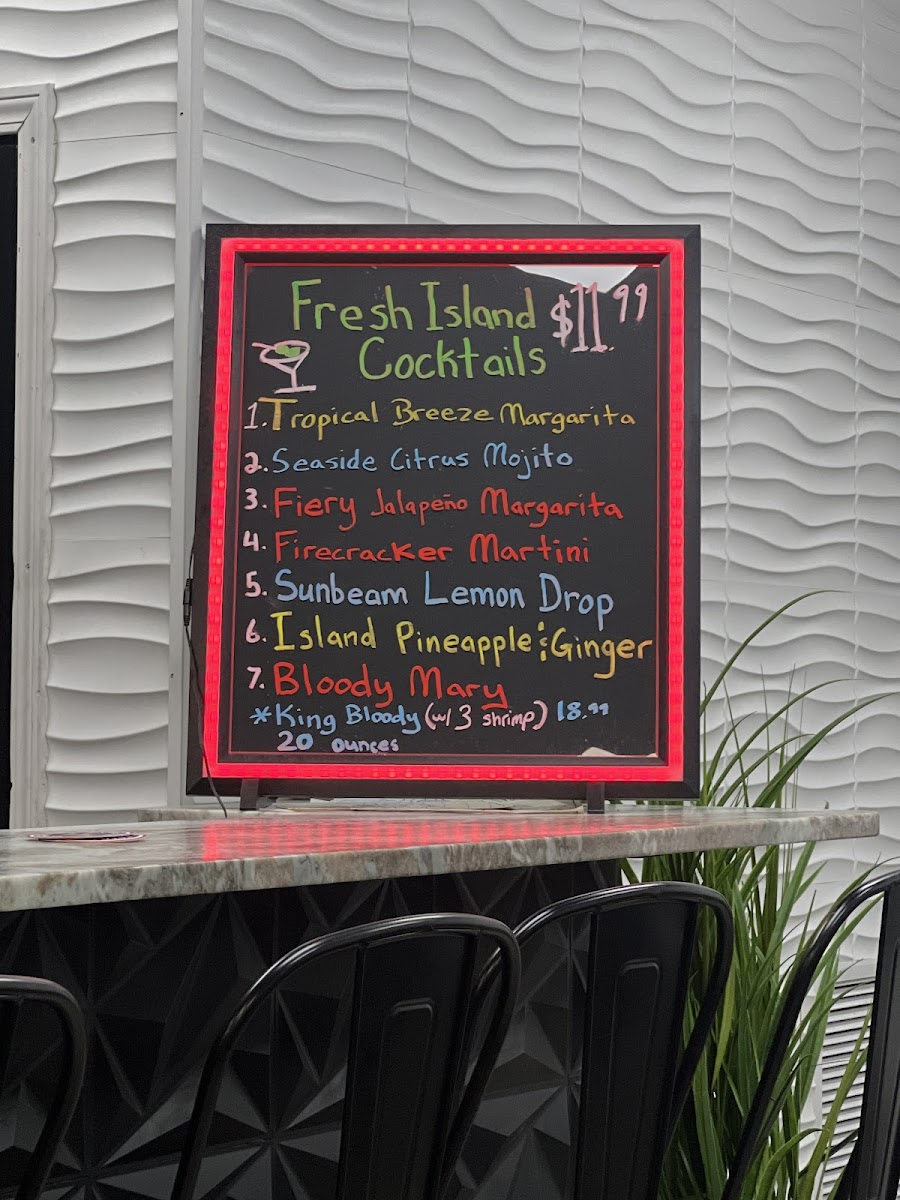 Fresh Island $11.99
Cocktails
1. Tropical Breeze Margarita
2. Seaside Citrus Mojito
3. Fiery Jalapeño Margarita
4. Firecracker Martini
5. Sunbeam Lemon Drop
6. Island Pineapple & Ginger
7. Bloody Mary
*King Bloody (w/ 3 shrimp) 18.99
20 ounces